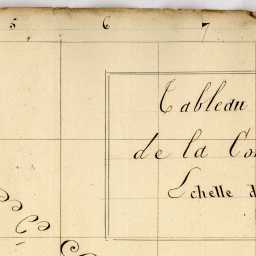 5 6 7
Tableau
de la Co
Echelle d